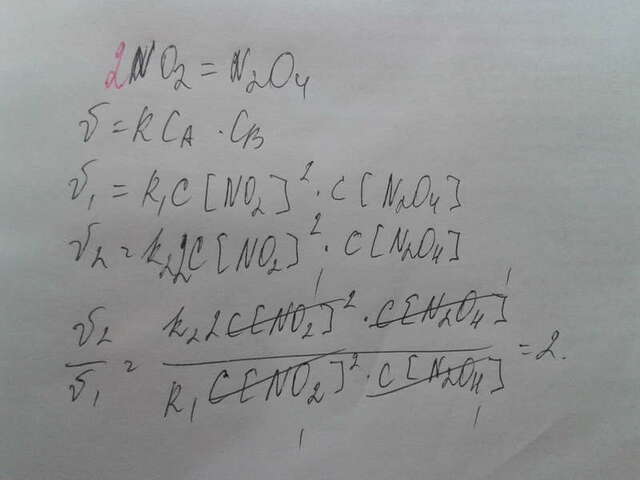 2NO₂ = N₂O₄
v = k C_A · C_B
v₁ = k₁C[NO₂]² · C[N₂O₄]
v₂ = k₂2C[NO₂]² · C[N₂O₄]
v₂/v₁ = k₂2C[NO₂]² · C[N₂O₄] / k₁C[NO₂]² · C[N₂O₄] = 2.